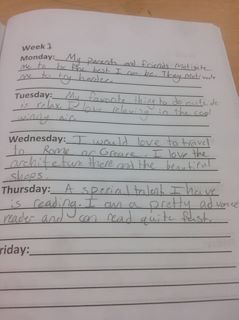 Week 1
Monday: My parents and friends motivate
me to be the best I can be. They motivate
me to try harder.
Tuesday: My favorite thing to do outside
is relax. I love relaxing in the cool
windy air.
Wednesday: I would love to travel
to Rome or Greece. I love the
architecture there and the beautiful
shops.
Thursday: A special talent I have
is reading. I am a pretty advance
reader and can read quite fast.
riday: